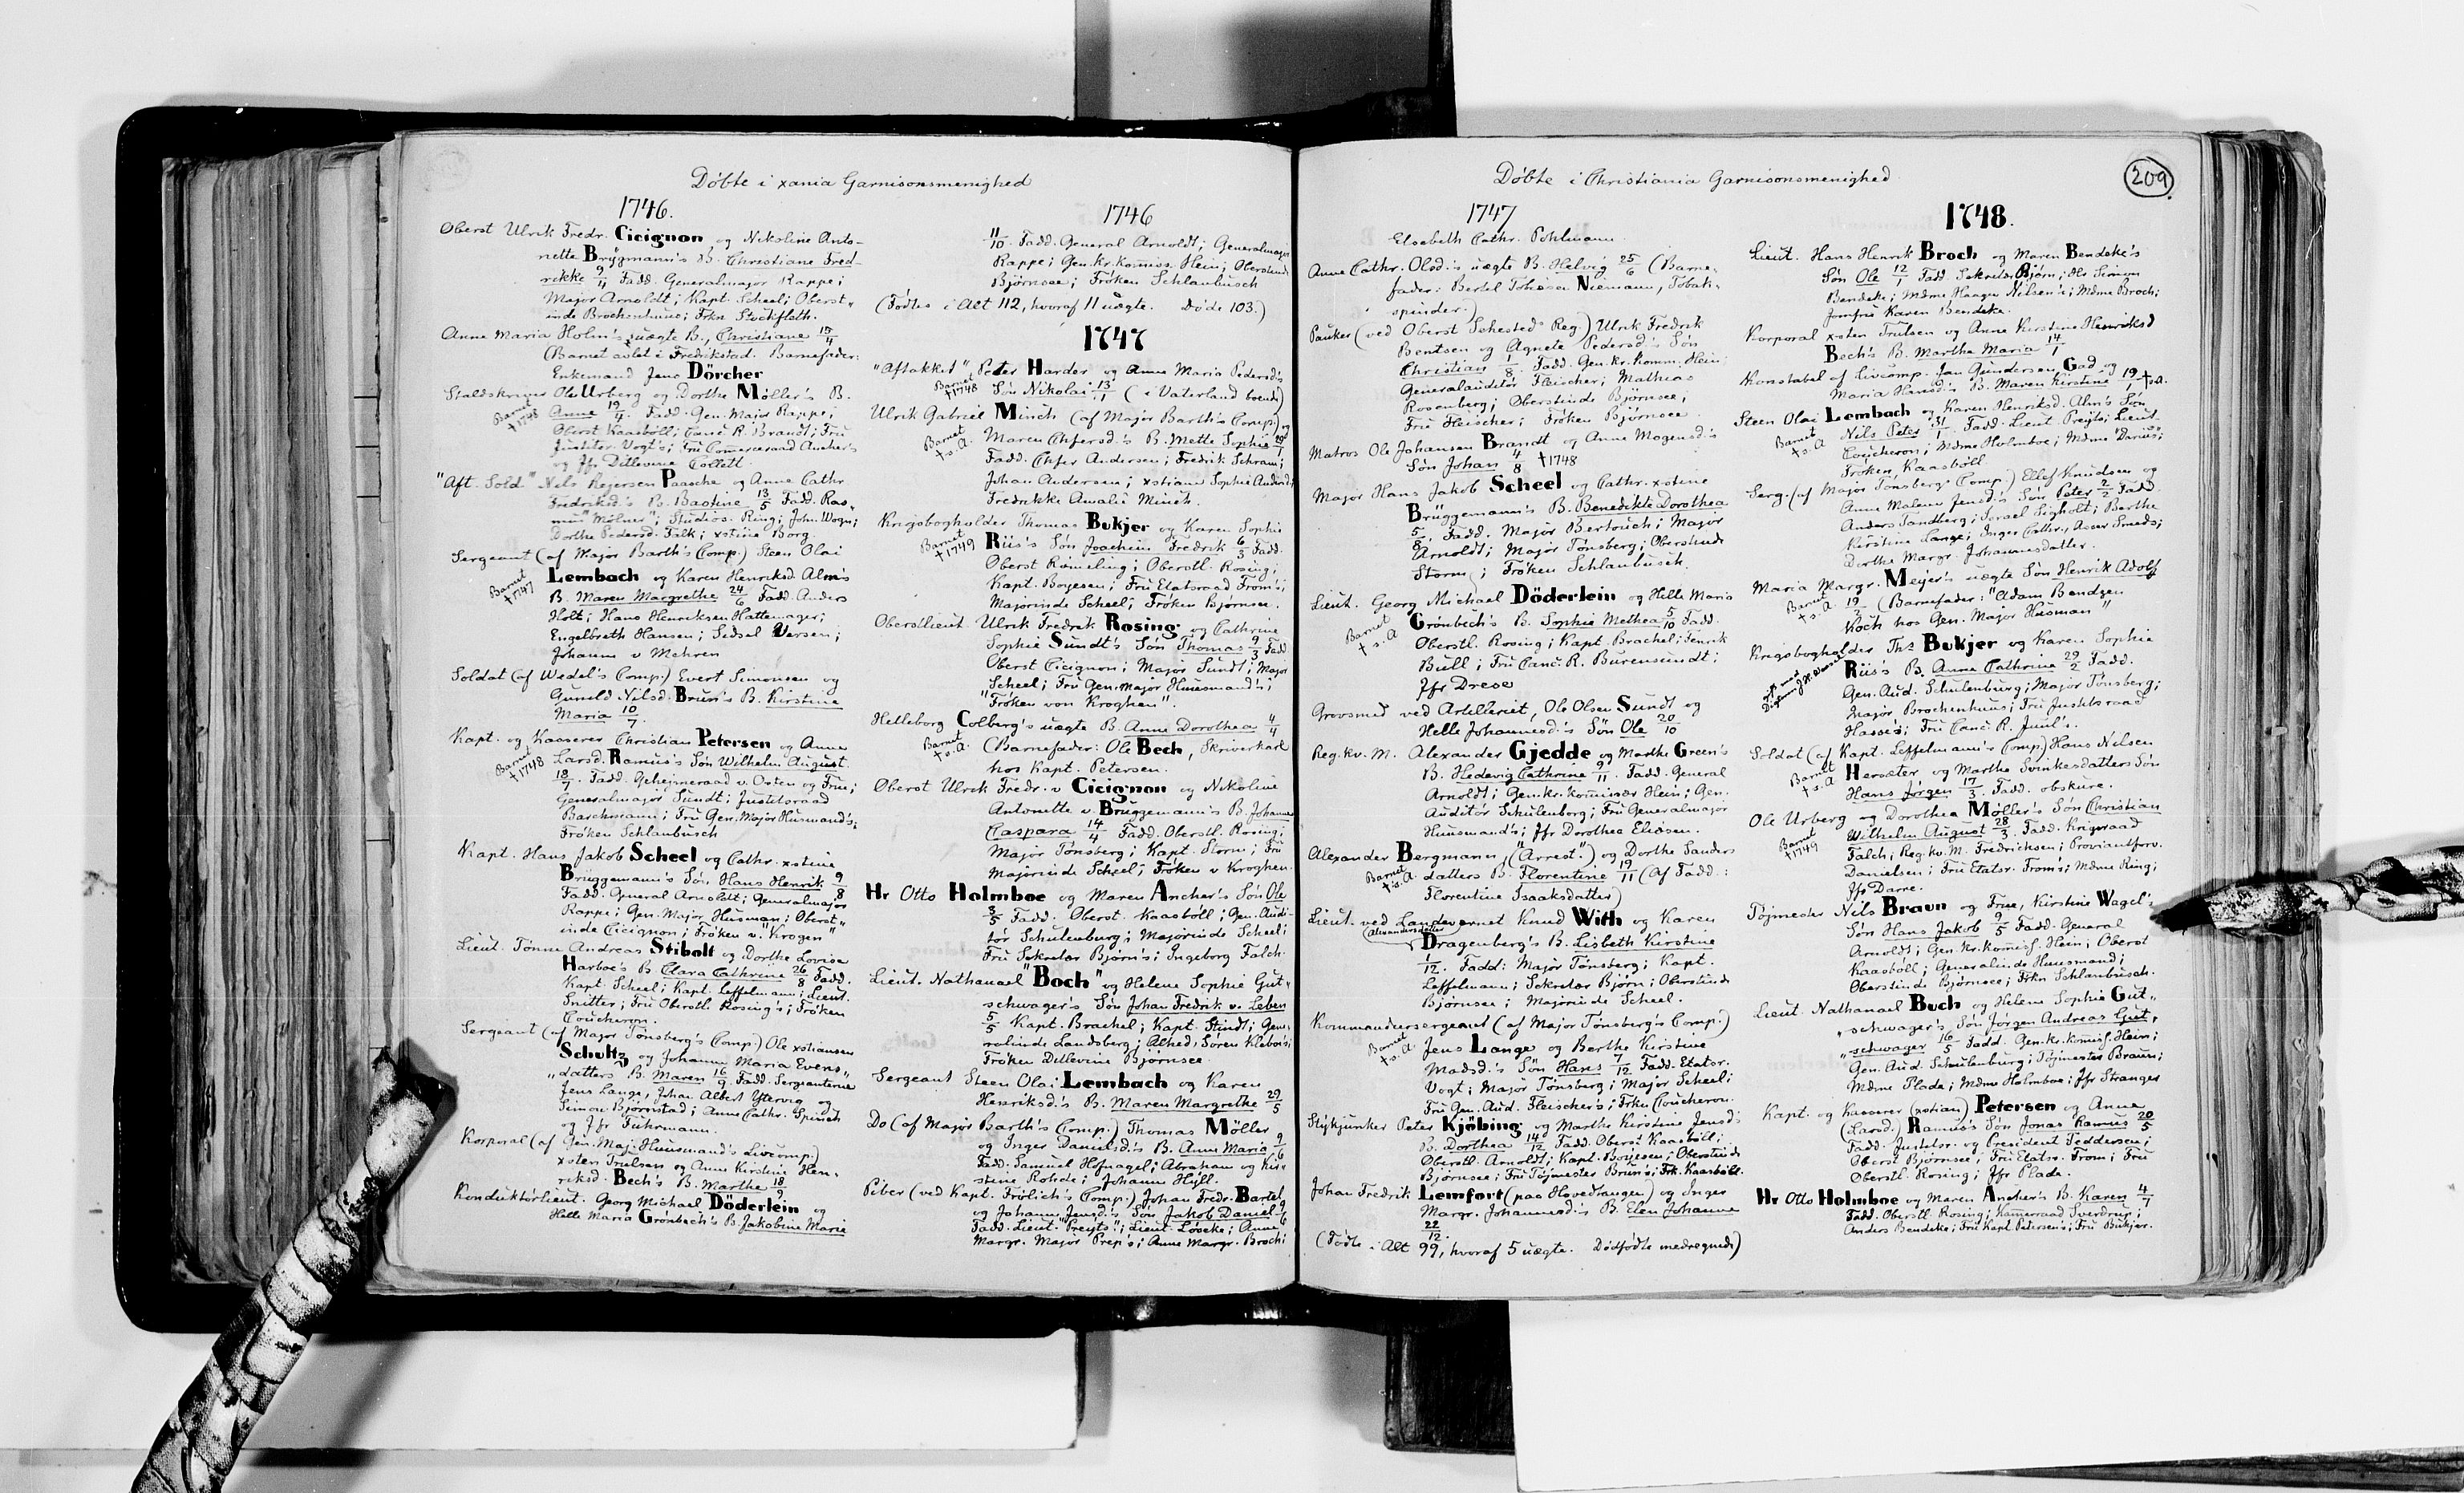 Döbte i xania Garnisonsmenighed
1746.
Oberst Ulrik Fredr. Cicignon og Nikoline Anto-
nette Brÿgmann's B. Christiane Fred-
rikke 9/4 Fadd. Generalmajor Rappe;
Major Arnoldt; Kapt. Scheel; Oberst„
inde Brochenhuus; Frkn Stockfleth.
Anne Maria Holm's uægte B., Christiane 15/4
(Barnet avlet i Fredrikstad. Barnefader:
Enkemand Jens Dörcher
Staldskriver Ole Urberg og Dorthe Møller's B.
Barnet †1748
Anne 19/4. Fadd. Gen. Major Rappe;
Oberst Kaasböll; Canc. R. Brandt; Fru
Justitsr. Vogt's; Fru Comerceraad Ancher's
og Jfr Ditlevine Collett.
"Aft. Sold." Nils Rejersen Paasche og Anne Cathr
Fredriksd.'s B. Bastine 13/5 Fadd. Ras„
mus "Mölner"; Studios. Ring; John Wogn;
Dorthe Pedersd. Falk; xstine Borg
Sergeant (af Major Barth's Comp.) Steen Olai
Barnet †1747
Lembach og Karen Henriksd. Alm's
B. Maren Margrethe 24/6 Fadd. Anders
Holt; Hans Henriksen Hattemager;
Engelbreth Hansen; Sidsel Iversen;
Johanne v Mehren
Soldat (af Wedel's Comp.) Evert Simonsen og
Gunild Nilsd. Brun's B. Kirstine
Maria 10/7.
Kapt. og Kasserer Christian Petersen og Anne
Barnet †1748
Larsd. Ramus's Søn Wilhelm August
18/7. Fadd. Gehejmeraad v. Osten og Frue;
Generalmajor Sundt; Justitsraad
Barchmann; Fru Gen. Major Husmand's;
Frøken Schlanbusch
Kapt. Hans Jakob Scheel og Cathr. xstine
Brüggemann's Søn, Hans Henrik 9/8
Fadd. General Arnoldt; Generalmajor
Rappe; Gen. Major Husman; Oberst„
inde Cicignon; Frøken v. "Krogen"
Lieut. Tönne Andreas Stibolt og Dorthe Lovise
Harboe's B Clara Cathrine 26/8 Fadd.
Kapt. Scheel; Kapt. Leffelmann; Lieut.
Snitter; Fru Oberstl. Rosing's; Frøken
Coucheron.
Sergeant (af Major Tönsberg's Comp.) Ole xstiansen
Schultz og Johanne Maria Evens„
„datters B. Maren 16/9 Fadd. Sergeanterne
Jens Lange, Johan Albert Ytervig og
Simon Björnstad; Anne Cathr. Spinck
og Jfr Fuhrmann.
Korporal (af Gen. Maj. Huusmand's Livcomp.)
xsten Trulsen og Anne Kirstine Hen„
riksd. Bech's B. Marthe 18/9
Konduktörlieut. Georg Michael Döderlein og
Helle Maria Grönbech's B. Jakobine Marie
1746
11/10. Fadd. General Arnoldt; Generalmajor
Rappe; Gen. kr. komiss. Hein; Oberstinde
Björnsee; Frøken Schlanbusch
(Fødtes i Alt 112, hvoraf 11 uægte. Døde 103.)
1747
"Aftakket" Peter Harder og Anne Maria Pedersd's
Barnet †1748
Søn Nikolai 13/1 (i Vaterland boende)
Ulrik Gabriel Minch (af Major Barth's Comp.) og
Barnet †s. A.
Maren Chfersd.'s B. Mette Sophie 29/1
Fadd. Chfer Andersen; Fredrik Schram;
Johan Andersen; xstiane Sophie Andersd.;
Fredrikke Amalie Minch.
Krigsbogholder Thomas Bukjer og Karen Sophie
Barnet †1749
Riis's Søn Joachim Fredrik 6/3 Fadd.
Oberst Römeling; Oberstl. Rosing;
Kapt. Boyesen; Fru Etatsraad From's;
Majorinde Scheel; Frøken Bjørnsee.
Oberstlieut. Ulrik Fredrik Rosing og Cathrine
Sophie Sundt's Søn Thomas 9/3 Fadd
Oberst Cicignon; Major Sundt; Major
Scheel; Fru Gen. major Huusmand's;
"Frøken von Kroghen".
Helleborg Colberg's uægte B. Anne Dorothea 4/4
Barnet †s. A.
(Barnefader: Ole Bech, Skriverkarl
hos Kapt. Petersen.
Oberst Ulrik Fredr. v Cicignon og Nikoline
Antonette v Brüggemann's B. Johanne
Caspara 14/4 Fadd. Oberstl. Rosing;
Major Tönsberg; Kapt. Storm; Fru
Majorinde Scheel; Frøken v Kroghen.
Hr Otto Holmboe og Maren Ancher's Søn Ole
3/5 Fadd. Oberst Kaasböll; Gen. Audi-
tör Schulenburg; Majorinde Scheel;
Fru Sekretær Björn's; Ingeborg Falch.
Lieut. Nathanael "Boch" og Helene Sophie Gut„
schwager's Søn Johan Fredrik v. Leben
5/5 Kapt. Brachel; Kapt. Stindt; Gene„
ralinde Landsberg; Alhed, Sören Kleboe's;
Frøken Ditlevine Bjørnsee
Sergeant Steen Olai Lembach og Karen
Henriksd.'s B. Maren Margrethe 29/5
Do (af Major Barth's Comp.) Thomas Möller
og Inger Danielsd.'s B. Anne Maria 9/6
Fadd. Samuel Hofnagel; Abraham og Kir„
stine Rohde; Johanne Hüll.
Piber (ved Kapt. Frölich's Comp.) Johan Fredr. Bartel
og Johanne Jensd.'s Søn Jakob Daniel 9/6
Fadd. Lieut. "Preyts"; Lieut. Lövcke; Anne
Margr. Major Prep's; Anne Margr. Broch;
Döbte i Christiania Garnisonsmenighed
209.
1747
Elsebeth Cathr. Pohlmann.
Anne Cathr. Olsd.'s uægte B. Helvig 25/6 (Barne„
fader: Bertel Tobiesen Niemann, Tobak„
spinder.)
Pauker (ved Oberst Sehesteds Reg.) Ulrik Fredrik
Bentsen og Agnete Pedersd's Søn
Christian 1/8. Fadd. Gen. kr. komm. Hein;
Generalauditør Fleischer; Mathias
Rosenberg; Oberstinde Björnsee;
Fru Fleischer; Frøken Bjørnsee
Matros Ole Johansen Brandt og Anne Mogensd's
Søn Johan 4/8 †1748
Major Hans Jakob Scheel og Cathr. xstine
Brüggemann's B. Benedikte Dorothea
5/8. Fadd. Major Bertouch; Major
Arnoldt; Major Tønsberg; Oberstinde
Storm; Frøken Schlanbusch.
Lieut. Georg Michael Döderlein og Helle Maria
Barnet †s. A
Grönbech's B. Sophie Methea 5/10 Fadd.
Oberstl. Rosing; Kapt. Brachel; Henrik
Bull; Fru Canc. R. Burensundt;
Jfr Drese
Grovsmed ved Artilleriet, Ole Olsen Sundt og
Helle Johannesd.'s Søn Ole 20/10
Reg. kv. M. Alexander Gjedde og Marthe Green's
B. Hedevig Cathrine 9/11. Fadd. General
Arnoldt; Gen. kr. kommissær Hein; Gen.
Auditör Schulenborg; Fru Generalmajor
Huusmand's; Jfr Dorothea Eliesen.
Alexander Bergmann, ("Arrest.") og Dorthe Sanders
Barnet †s. A.
datters B. Florentine 19/11 (af Fadd.:
Florentine Isaaksdatter)
Lieut. ved Landevernet Knud With og Karen
(Alexandersdatter)
Dragenberg's B. Lisbeth Kirstine
1/12. Fadd: Major Tønsberg; Kapt.
Leffelmann; Sekretær Bjørn; Oberstinde
Bjørnsee; Majorinde Scheel.
Kommandersergeant (af Major Tønsberg's Comp.)
Barnet †s. A.
Jens Lange og Berthe Kirstine
Madsd.'s Søn Hans 7/12 Fadd. Etatsr.
Vogt; Major Tønsberg; Major Scheel;
Fru Gen. Aud. Fleischer's; Frkn Coucheron.
Stykjunker Peter Kjöbing og Marthe Kirstine Jensd.'s
B. Dorthea 14/12 Fadd. Oberst Kaasböll;
Oberstl. Arnoldt; Kapt. Boyesen; Oberstinde
Bjørnsee; Fru Töjmester Brun's; Frk. Kaasböll.
Johan Fredrik Lemfort (paa Hovedtangen) og Inger
Margr. Johannesd.'s B. Elen Johanne
22/12.
(Fødte i Alt 99, hvoraf 5 uægte. Dødfødte medregnede)
1748.
Lieut. Hans Henrik Broch og Maren Bendeke's
Søn Ole 12/1 Fadd Sekretær Björn; Hr Simon
Bendeke; Mdme Haagen Nilsen's; Mdme Broch;
Jomfru Karen Bendeke.
Korporal xsten Trulsen og Anne Kirstine Henriksd
Bech's B. Marthe Maria 14/1
Konstabel af Livcomp. Jan Gundersen Gad og
Maria Hansd.'s B. Maren Kirstine 19/1 †s.a.
Steen Olai Lembach og Karen Henriksd. Alm's Søn
Barnet †s. A
Nils Peter 31/1 Fadd. Lieut Preyts; Lieut.
Coucheron; Mdme Holmboe; Mdme "Darius";
Frøken Kaasböll
Serg. (af Major Tønsbergs Comp.) Ellef Knudsen og
Anne Malene Jensd's Søn Peter 2/2 Fadd.
Anders Sandberg; Israel Sigholt; Berthe
Kirstine Lange; Inger Cathr., Asser Smeds;
Dorthe Margr. Johannesdatter.
Maria Margr. Meyer's uægte Søn Henrik Adolf
Barnet †s. A.
19/2 (Barnefader: "Adam Bendzen
Koch hos Gen. Major Husman"
Krigsbogholder Ths Bukjer og Karen Sophie
Riis's B. Anne Cathrine 29/2 Fadd.
Gen. Aud. Schulenburg; Major Tønsberg;
Major Brochenhuus; Fru Justitsraad
Hasse's; Fru Canc. R. Juul's.
Soldat (af Kapt. Leffelmann's Comp.) Hans Nilsen
Barnet †s. A
Heroæter og Marthe Svinkesdatters Søn
Hans Jørgen 17/3. Fadd. obskure.
Ole Urberg og Dorothea Møller's Søn Christian
Barnet †1749
Wilhelm August 28/3. Fadd. Krigsraad
Falch; Reg. kv. M. Fredrichsen; Proviantforv.
Danielsen; Fru Etatsr. From's; Mdme Ring;
Jfr Darre.
Töjmester Nils Braun og Frue, Kirstine Wagel's
Søn Hans Jakob 9/5 Fadd. General
Arnoldt; Gen. kr. komiss. Hein; Oberst
Kaasböll; Generalinde Huusmand;
Oberstinde Bjørnsee; Frkn Schlanbusch.
Lieut. Nathanael Buch og Helene Sophie Gut„
„schwager's Søn Jørgen Andreas Gut„
„schwager 16/5 Fadd. Gen. kr. komiss. Hein;
Gen. Aud. Schulenburg; Töjmester Braun;
Mdme Plade; Mdme Holmboe; Jfr Stranger
Kapt. og Kasserer (xstian) Petersen og Anne
(Larsd.) Ramus's Søn Jonas Ramus 20/5
Fadd. Justitsr. og President Feddersen;
Oberst Bjørnsee; Fru Etatsr. From; Fru
Oberstl. Rosing; Jfr Plade.
Hr Otto Holmboe og Maren Ancher's B. Karen 4/7
Fadd. Oberstl. Rosing; Kammerraad Sverdrup;
Anders Bendeke; Fru Kapt Petersen's; Fru Bukjer.